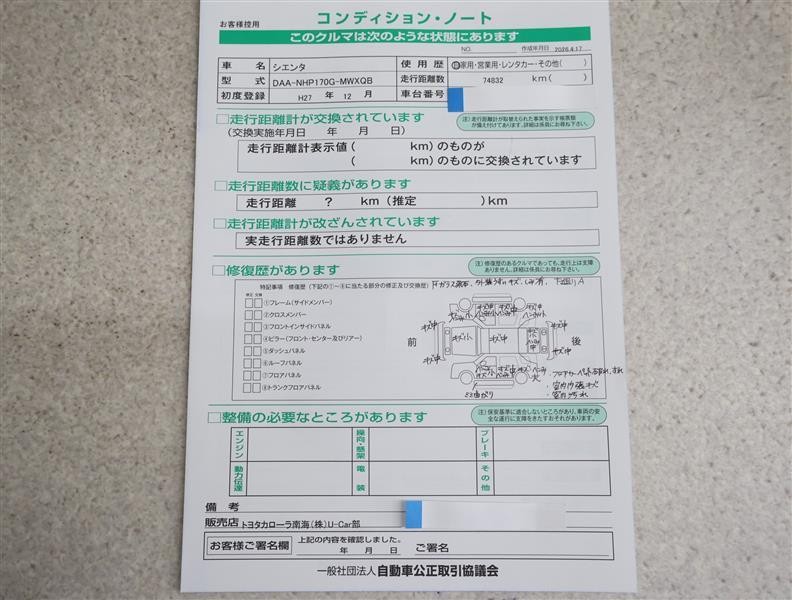 お客様控用
コンディション・ノート
このクルマは次のような状態にあります
NO.
作成年月日 2026.4.17
車名 シエンタ 使用歴 自家用・営業用・レンタカー・その他( )
型式 DAA-NHP170G-MWXQB 走行距離数 74832 km( )
初度登録 H27 年 12 月 車台番号
□走行距離計が交換されています
注)走行距離計が取替えられた事実を示す帳票類が備え付けてあります。詳細は係員にお尋ね下さい。
(交換実施年月日 年 月 日)
走行距離計表示値( km)のものが
( km)のものに交換されています
□走行距離数に疑義があります
走行距離 ? km(推定 )km
□走行距離計が改ざんされています
実走行距離数ではありません
□修復歴があります
注)修復歴のあるクルマであっても、走行上は支障ありません。詳細は係員にお尋ね下さい。
特記事項 修復歴(下記の①~⑧に当たる部分の修正及び交換歴)
修正 交換
①フレーム(サイドメンバー)
②クロスメンバー
③フロントインサイドパネル
④ピラー(フロント・センター及びリアー)
⑤ダッシュパネル
⑥ルーフパネル
⑦フロアパネル
⑧トランクフロアパネル
前
後
キズ小
キズ中
キズ中
・室内汚れ
□整備の必要なところがあります
注)保安基準に適合しないところがあり、車両の安全な運行に支障をきたすおそれがあります。
エンジン 操向・懸架 ブレーキ
動力伝達 電装 その他
備考
販売店 トヨタカローラ南海(株)U-Car部
お客様ご署名欄 上記の内容を確認しました。
年 月 日 ご署名
一般社団法人 自動車公正取引協議会